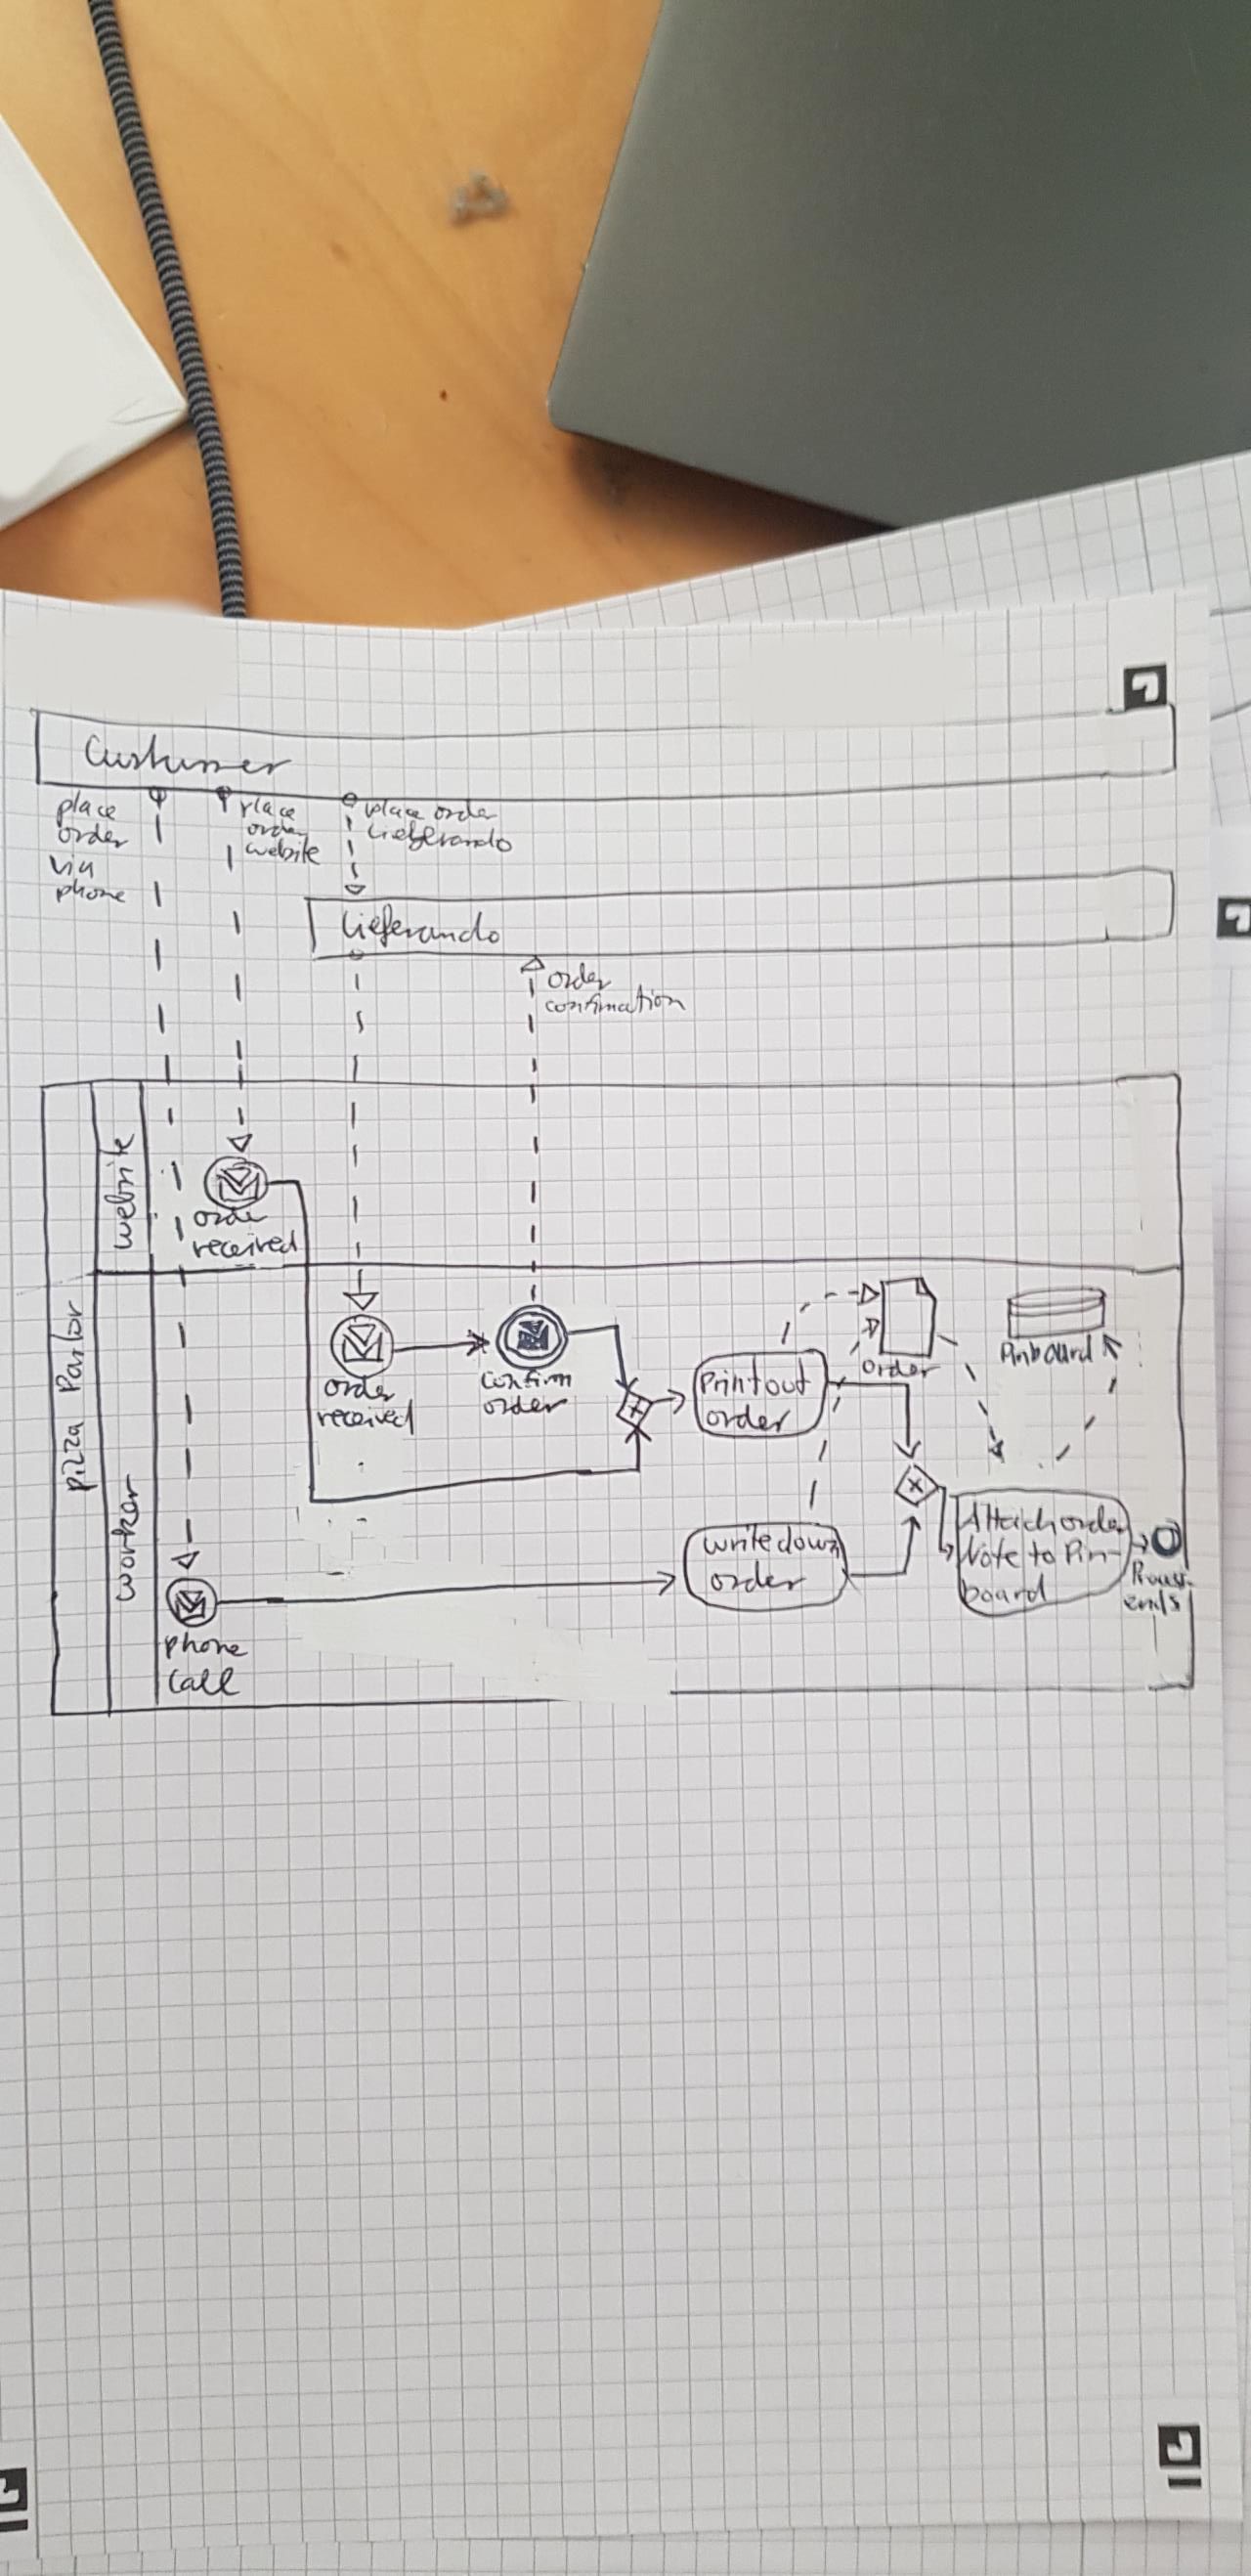 Customer
place
order
via
phone
place
order
website
place order
Lieferando
Lieferando
order
confirmation
Pizza Parlor
website
order
received
worker
order
received
confirm
order
Printout
order
order
Pinboard
write down
order
Attach order
Note to Pin-
board
ends
phone
call